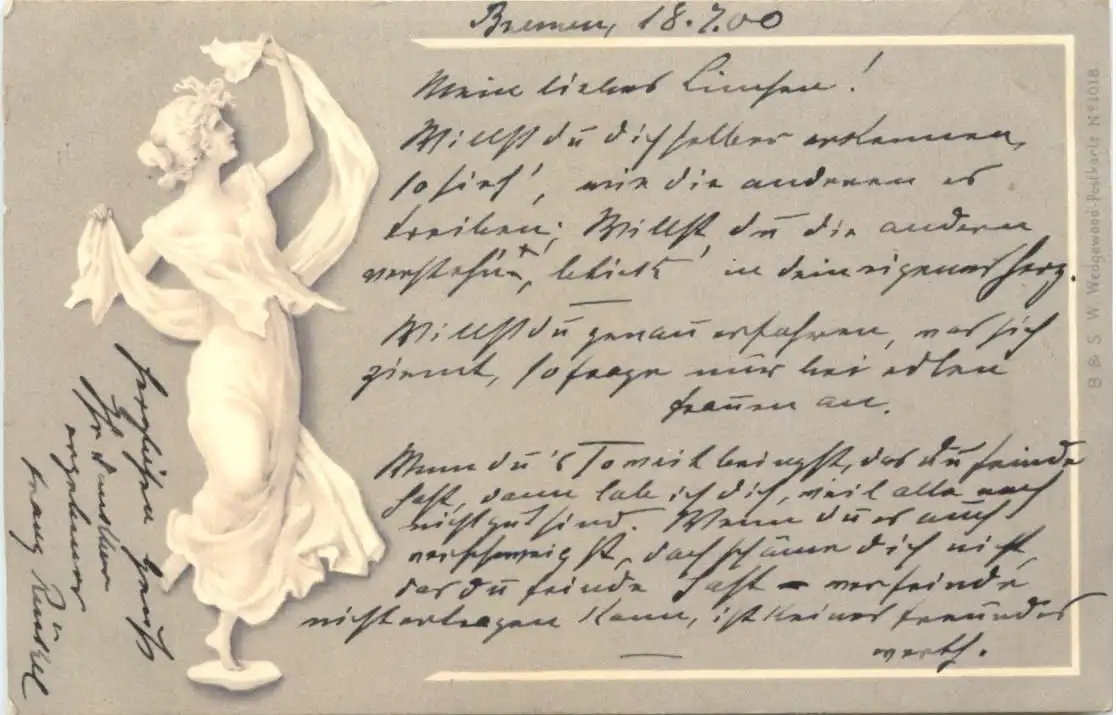 Bremen, 18.7.00
Mein liebes Linchen!
Willst du dich selber erkennen,
so sieh', wie die anderen es
treiben; Willst du die andern
verstehn, blick' in dein eigenes Herz.
Willst du genau erfahren, was sich
ziemt, so frage nur bei edlen
Frauen an.
Wenn du's so weit bringst, das du Feinde
hast, dann lob ich dich, weil alle noch
nicht gut sind. Wenn du es auch
verschweigst, doch schäme dich nicht,
das du Feinde hast – wer Feinde
nicht ertragen kann, ist keines Freundes
werth.
Herzlichen Gruß
Ihr
ergebener
Franz
B & S. W. Wedgewood-Postkarte Nº 1018